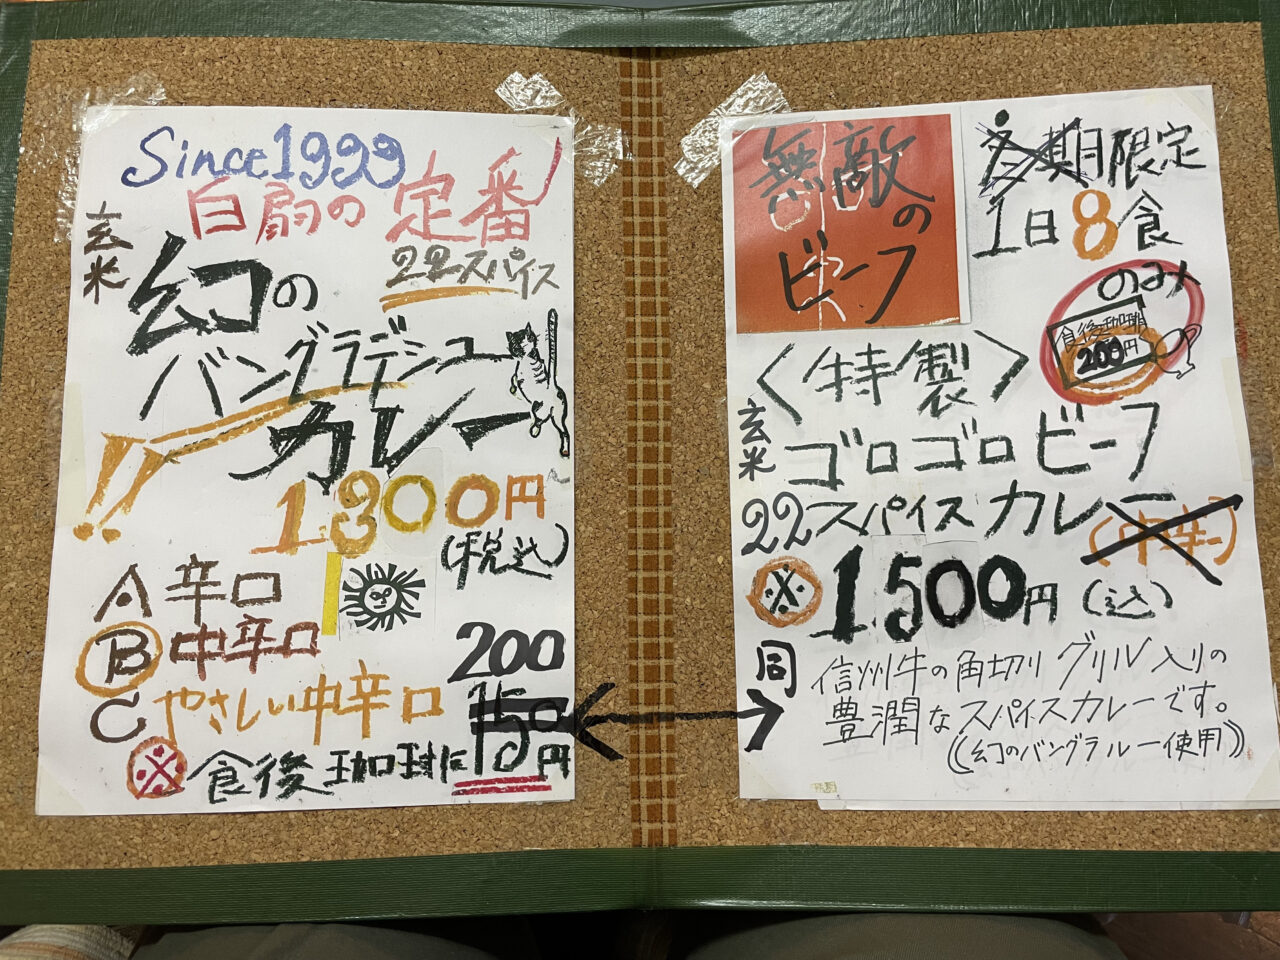 Since1999
白扇の定番
玄米
22スパイス
幻の
バングラデシュ
カレー!!
1.300円
(税込)
A 辛口
B 中辛口
C やさしい中辛口
200
150円
※食後珈琲に
無敵の
ビーフ
期限定
1日8食
のみ
食後珈琲
200円
〈特製〉
玄米
ゴロゴロビーフ
22スパイスカレー
(中辛)
※1.500円(込)
同
信州牛の角切りグリル入りの
豊潤なスパイスカレーです。
((幻のバングラルー使用))